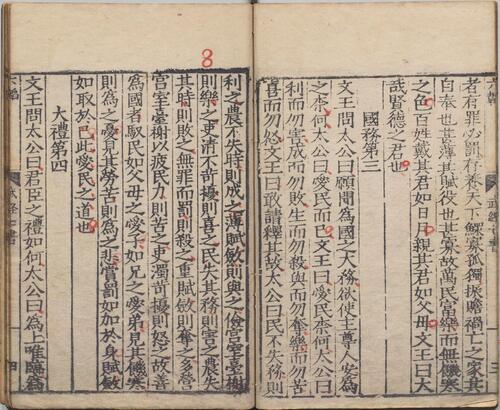 者有罪必罰存養天下鰥寡孤獨振贍禍亡之家其
自奉也甚薄其賦役也甚寡故萬民富樂而無饑寒
之色百姓戴其君如日月親其君如父母文王曰大
哉賢德之君也
國務第三
文王問太公曰願聞爲國之大務欲使主尊人安爲
之柰何太公曰愛民而已文王曰愛民柰何太公曰
利而勿害成而勿敗生而勿殺與而勿奪樂而勿苦
喜而勿怒文王曰敢請釋其故太公曰民不失務則
8
利之農不失時則成之薄賦斂則與之儉宮室臺榭
則樂之吏清不苛擾則喜之民失其務則害之農失
其時則敗之無罪而罰則殺之重賦斂則奪之多營
宮室臺榭以疲民力則苦之吏濁苛擾則怒之故善
爲國者馭民如父母之愛子如兄之愛弟見其饑寒
則爲之憂見其勞苦則爲之悲賞罰如加於身賦斂
如取於己此愛民之道也
大禮第四
文王問太公曰君臣之禮如何太公曰爲上唯臨爲
四